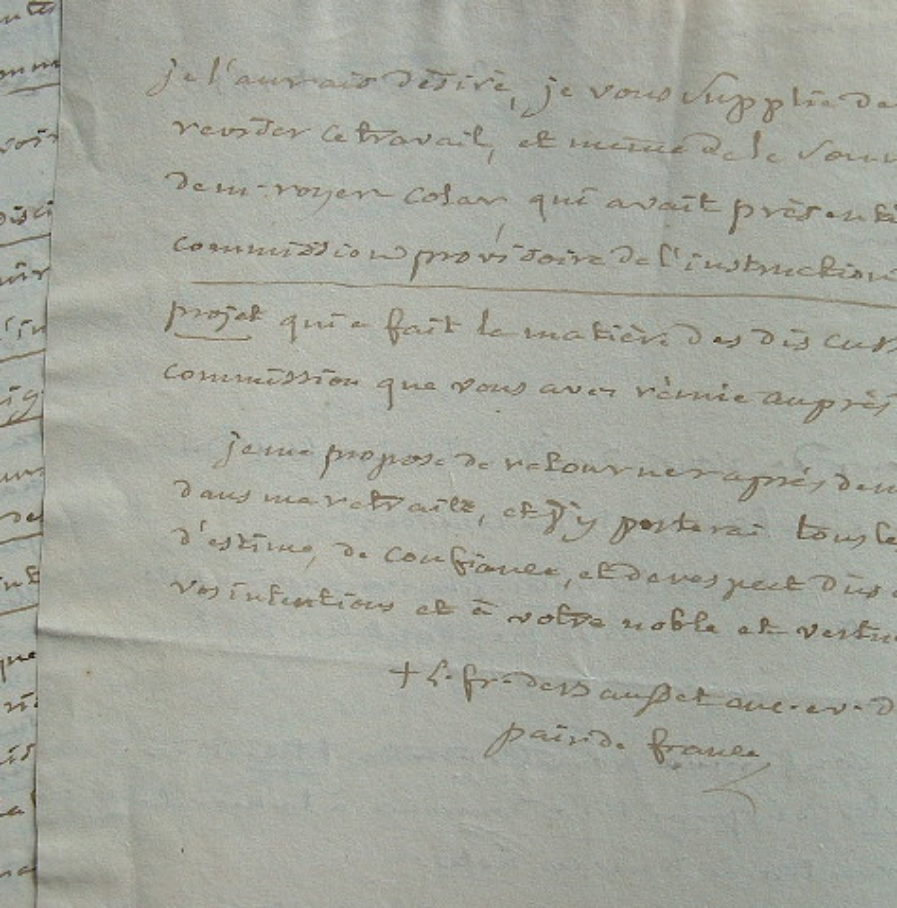 je l'aurais désiré, je vous supplie de
revoir ce travail, et même de le
de mr. royer colar qui avait présenté
commission provisoire de l'instruction
projet qui a fait la matière des discuss
commission que vous avez réunie auprès
je me propose de retourner après dem
dans ma retraite, et j'y porterai tous le
d'estime, de confiance, et de respect dus
vos intentions et à votre noble et vertu
+ L. fr. de Bausset anc. ev. d
pair de france